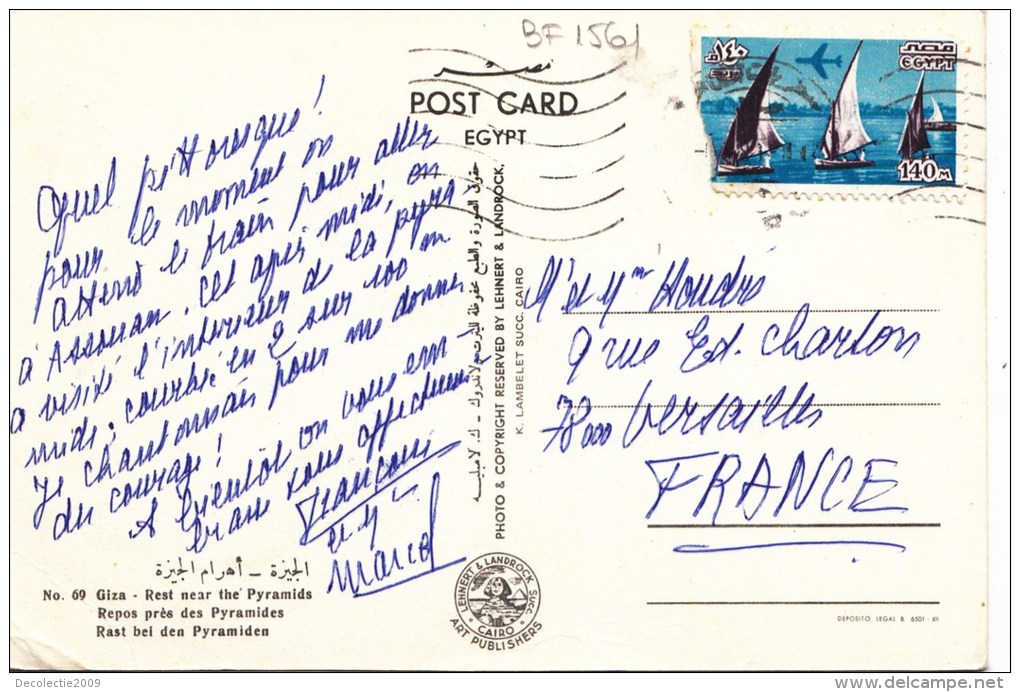 BF 1561
نصر
POST CARD
EGYPT
١٤٠
مصر
EGYPT
140 M
Quel pittoresque !
pour le moment on
attend le train pour aller
à Assouan. Cet après midi, on
a visité l'intérieur de la pyra-
mide, courbé en 2 sur 100 m
Je chantonnais pour me donner
du courage !
A bientôt on vous em-
brasse tous affectueus
François
et
Marcel
حقوق الصورة والطبع محفوظة لليرت ولاندروك - ك. لامبليه
PHOTO & COPYRIGHT RESERVED BY LEHNERT & LANDROCK,
K. LAMBELET SUCC. CAIRO
M et Mme Houdré
9 rue Ed. Charton
78000 Versailles
FRANCE
الجيزة - أهرام الجيزة
No. 69 Giza - Rest near the Pyramids
Repos près des Pyramides
Rast bei den Pyramiden
LEHNERT & LANDROCK SUCC.
CAIRO
ART PUBLISHERS
DEPOSITO LEGAL B. 6501 - XII
Decolectie2009
delcampe.net